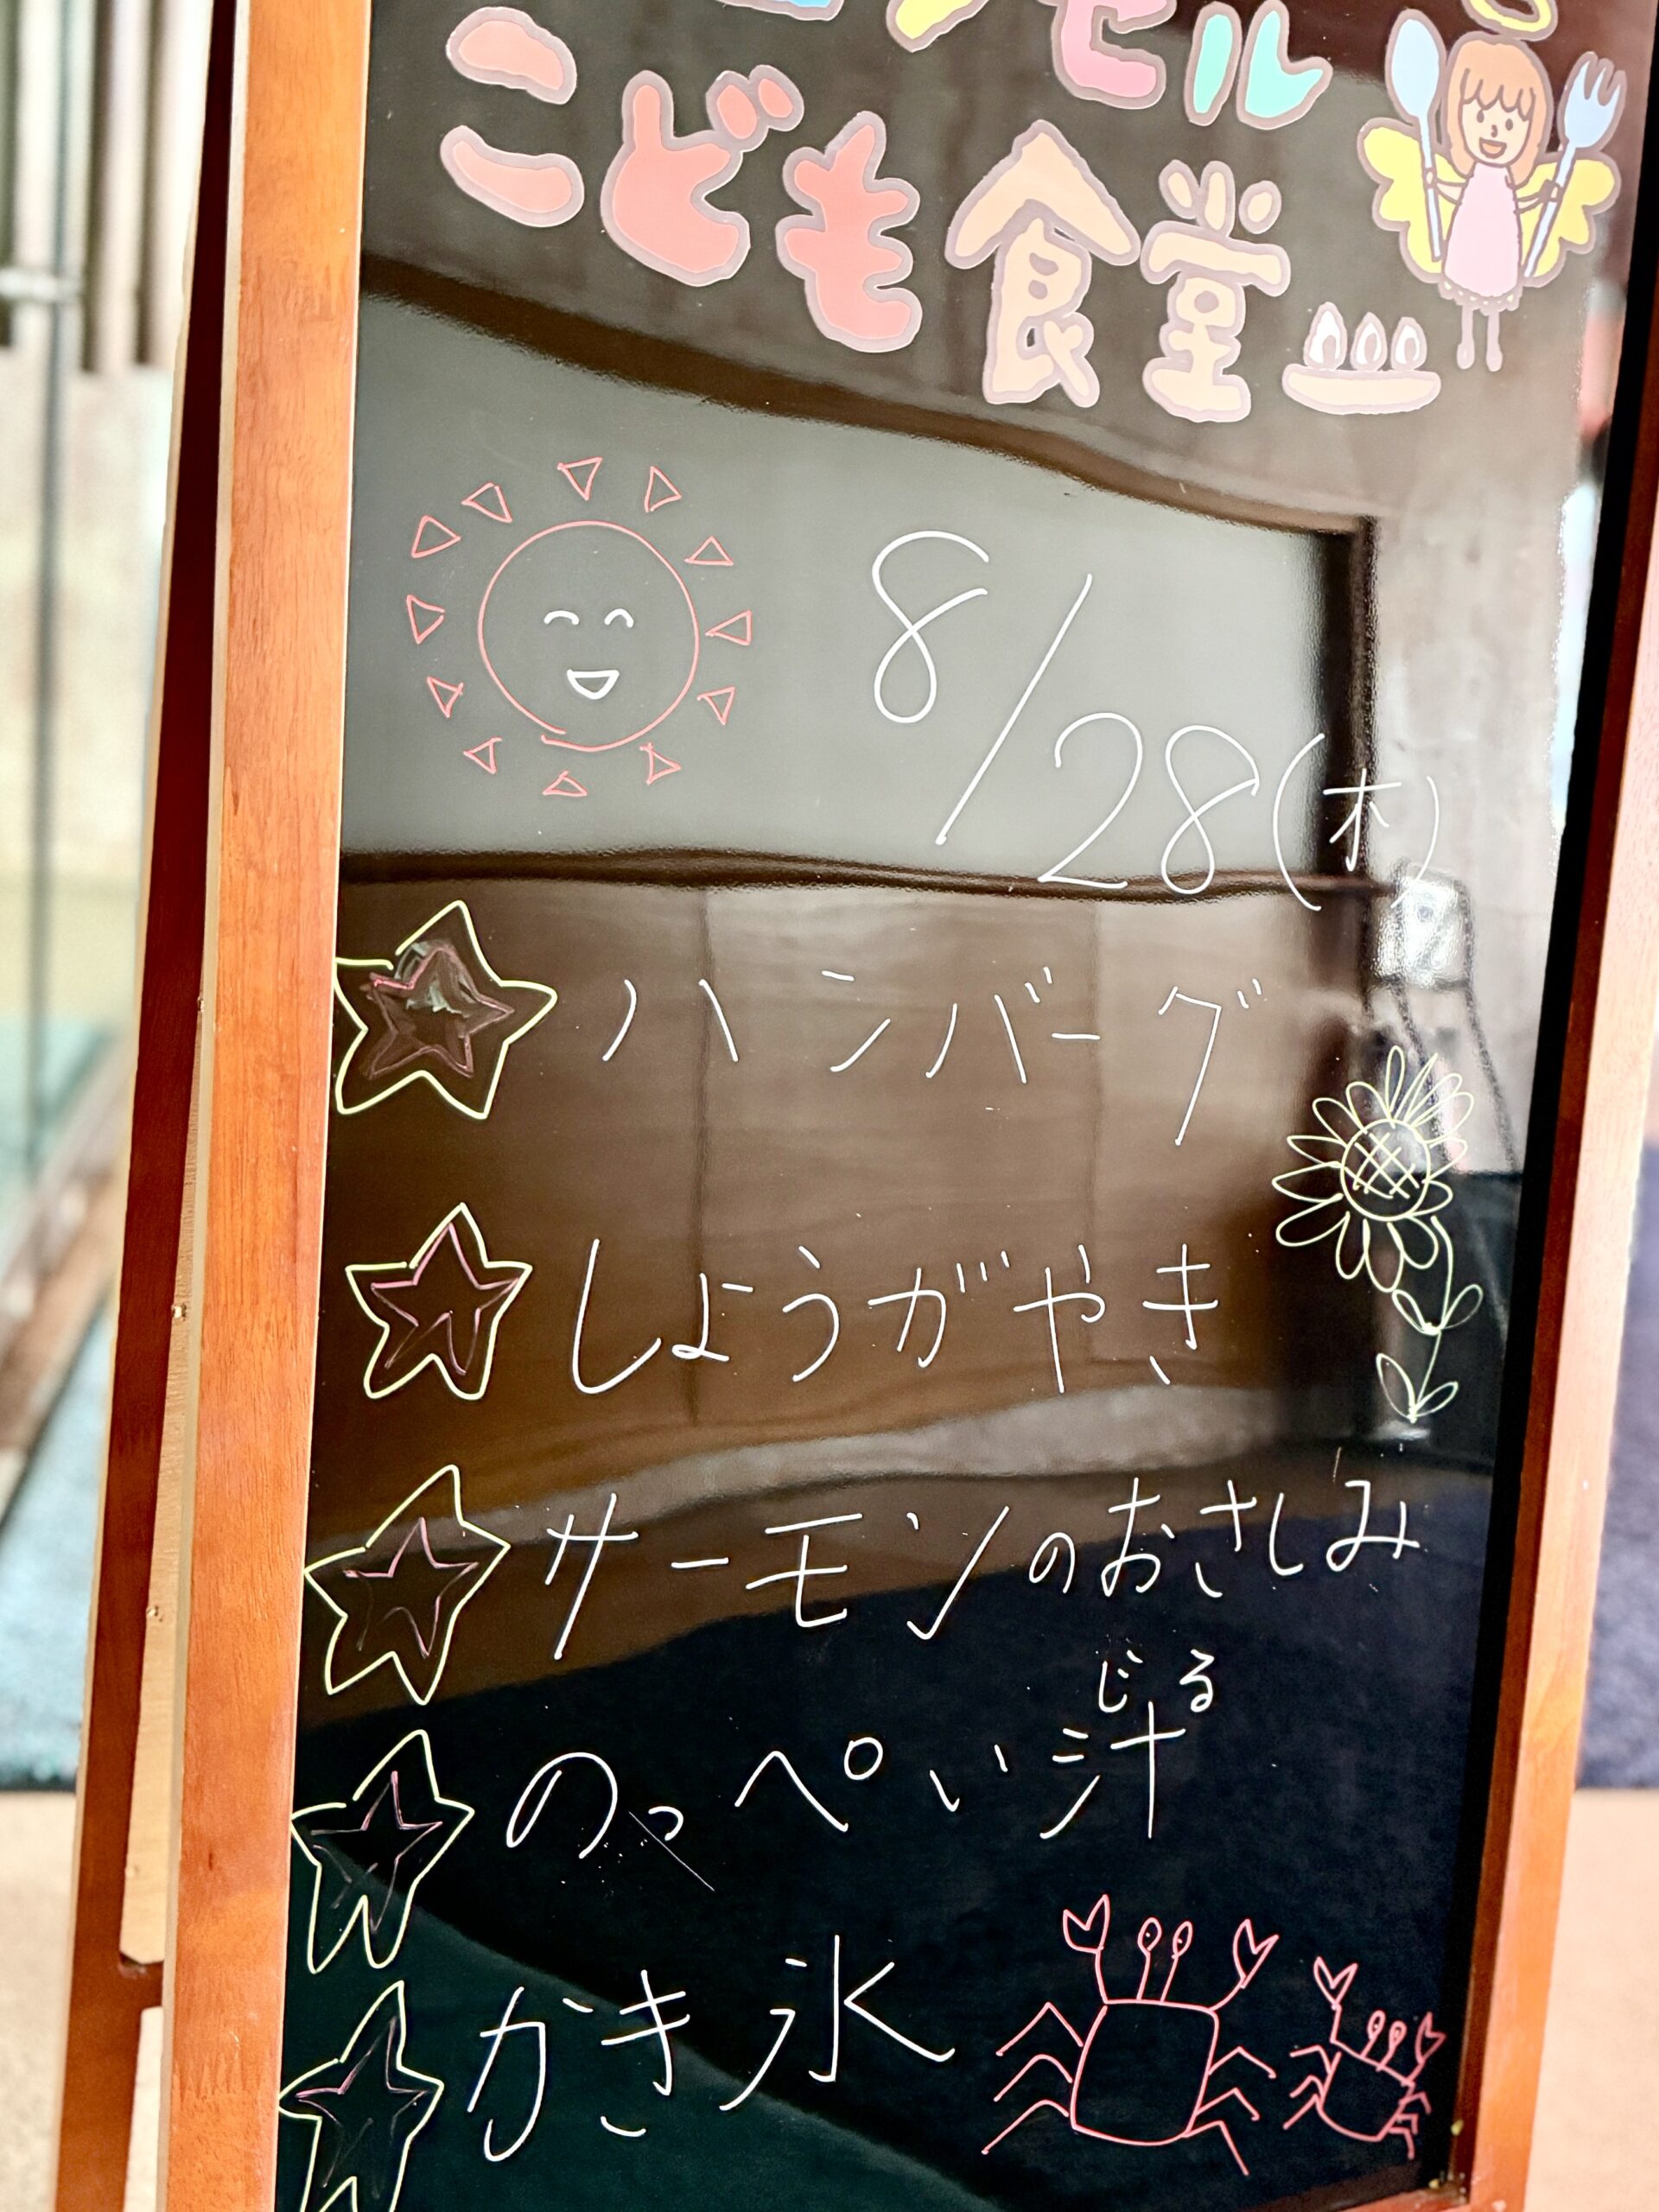 セル
こども食堂
8/28(木)
ハンバーグ
しょうがやき
サーモンのおさしみ
じる
のっぺい汁
かき氷